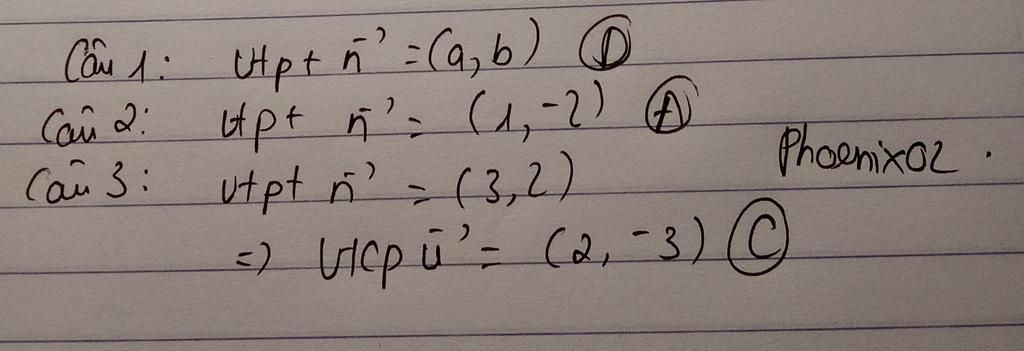 Câu 1: vtpt n→ = (a, b) Ⓓ
Câu 2: vtpt n→ = (1, -2) Ⓐ
Câu 3: vtpt n→ = (3, 2)
Phoenix02.
=> vtcp u→ = (2, -3) Ⓒ